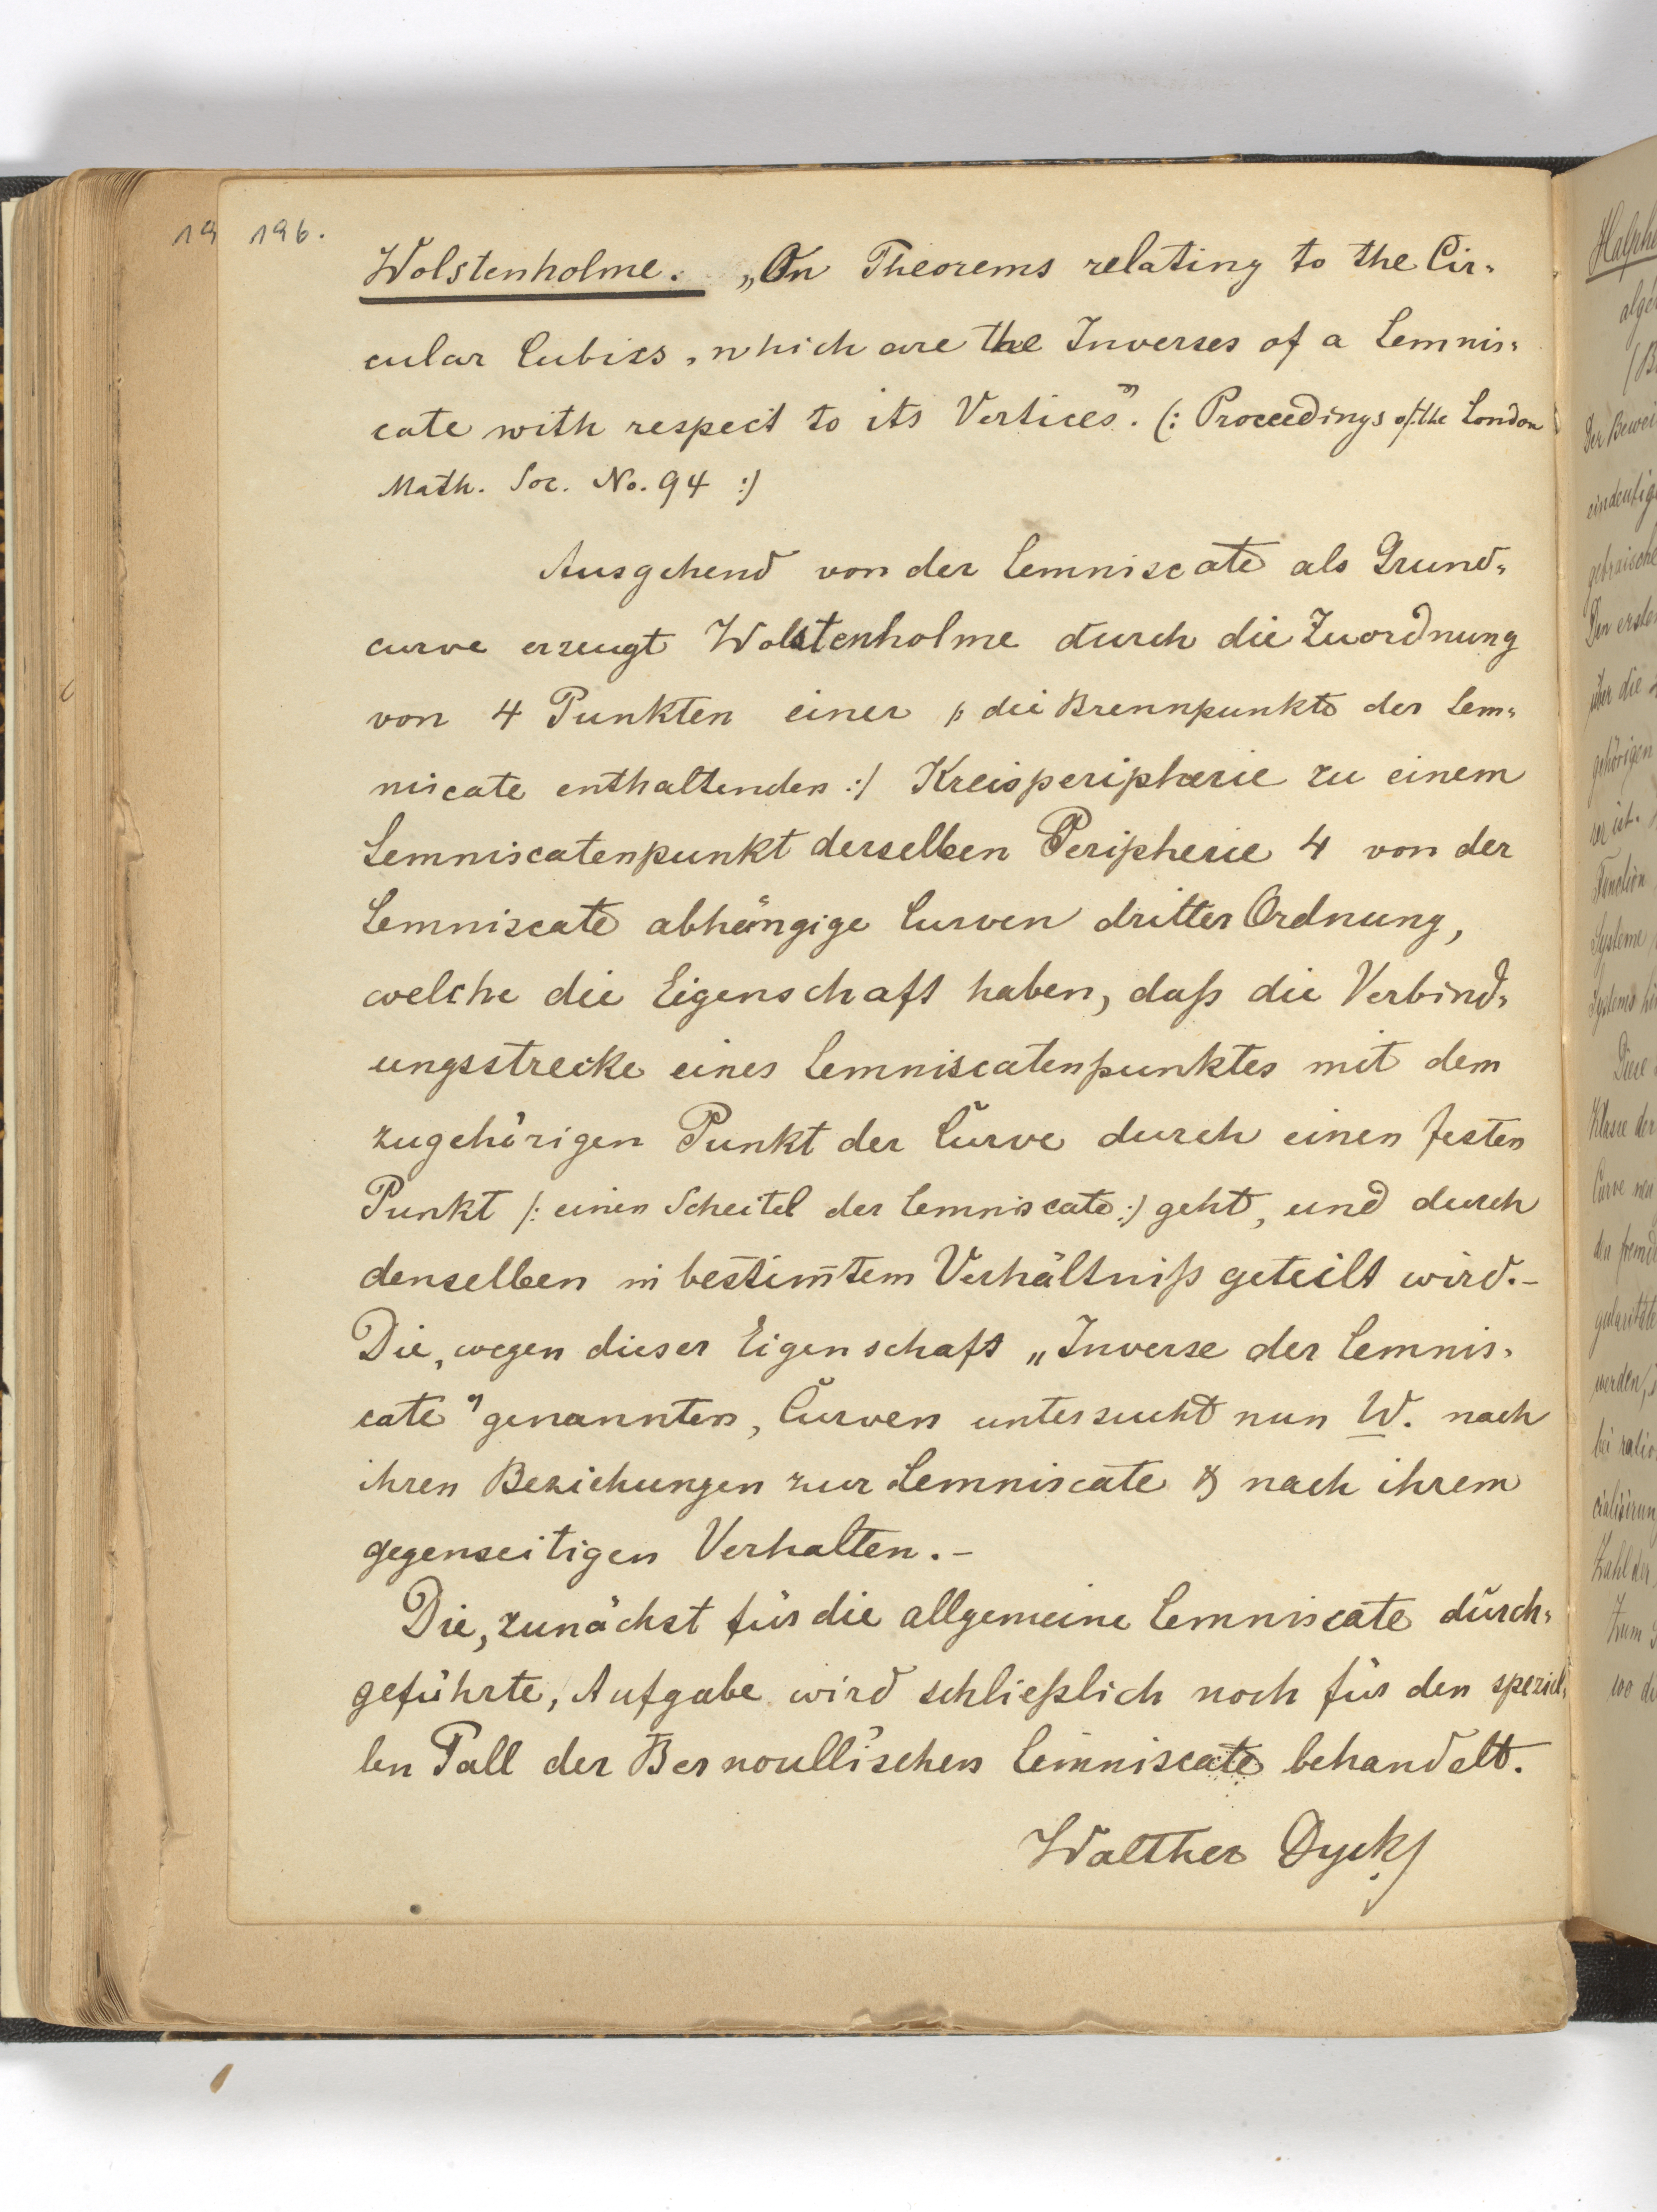 19 196.
Wolstenholme. „On Theorems relating to the Cir-
cular Cubics, which are the Inverses of a Lemnis-
cate with respect to its Vertices". (: Proceedings of the London
Math. Soc. No. 94 :)
Ausgehend von der Lemniscate als Grund-
curve erzeugt Wolstenholme durch die Zuordnung
von 4 Punkten einer /: die Brennpunkte der Lem-
niscate enthaltenden :/ Kreisperipherie zu einem
Lemniscatenpunkt derselben Peripherie 4 von der
Lemniscate abhängige Curven dritter Ordnung,
welche die Eigenschaft haben, daß die Verbind-
ungsstrecke eines Lemniscatenpunktes mit dem
zugehörigen Punkt der Curve durch einen festen
Punkt /: einen Scheitel der Lemniscate :/ geht, und durch
denselben in bestim̅tem Verhältniß geteilt wird.-
Die, wegen dieser Eigenschaft „Inverse der Lemnis-
cate" genannten, Curven untersucht nun W. nach
ihren Beziehungen zur Lemniscate & nach ihrem
gegenseitigen Verhalten.-
Die, zunächst für die allgemeine Lemniscate durch-
geführte, Aufgabe wird schließlich noch für den speziel-
len Fall der Bernoulli'schen Lemniscate behandelt.
Walther Dyck